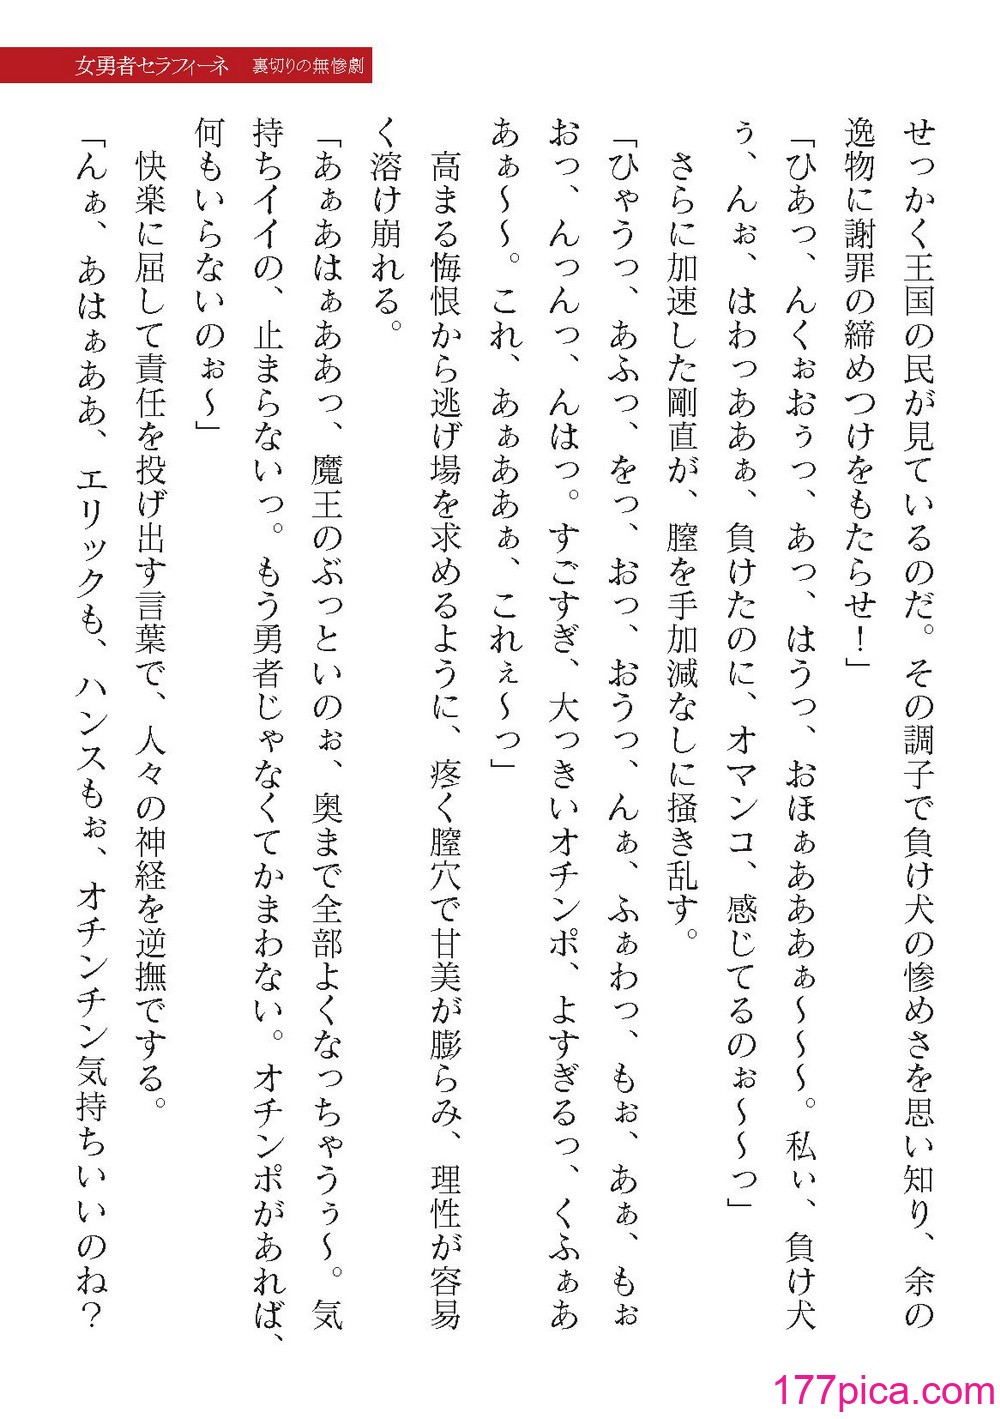 女勇者セラフィーネ 裏切りの無惨劇
せっかく王国の民が見ているのだ。その調子で負け犬の惨めさを思い知り、余の
逸物に謝罪の締めつけをもたらせ！」
「ひあっ、んくぉおぅっ、あっ、はうっ、おほぁああぁ～～～。私ぃ、負け犬
ぅ、んぉ、はわっああぁ、負けたのに、オマンコ、感じてるのぉ～～っ」
さらに加速した剛直が、膣を手加減なしに掻き乱す。
「ひゃうっ、あふっ、をっ、おっ、おうっ、んぁ、ふぁわっ、もぉ、あぁ、もぉ
おっ、んっんっ、んはっ。すごすぎ、大っきいオチンポ、よすぎるっ、くふぁあ
あぁ～～。これ、あぁああぁ、これぇ～っ」
高まる悔恨から逃げ場を求めるように、疼く膣穴で甘美が膨らみ、理性が容易
く溶け崩れる。
「あぁあはぁああっ、魔王のぶっといのぉ、奥まで全部よくなっちゃうぅ～。気
持ちイイの、止まらないっ。もう勇者じゃなくてかまわない。オチンポがあれば、
何もいらないのぉ～」
快楽に屈して責任を投げ出す言葉で、人々の神経を逆撫でする。
「んぁ、あはぁああ、エリックも、ハンスもぉ、オチンチン気持ちいいのね？
177pica.com